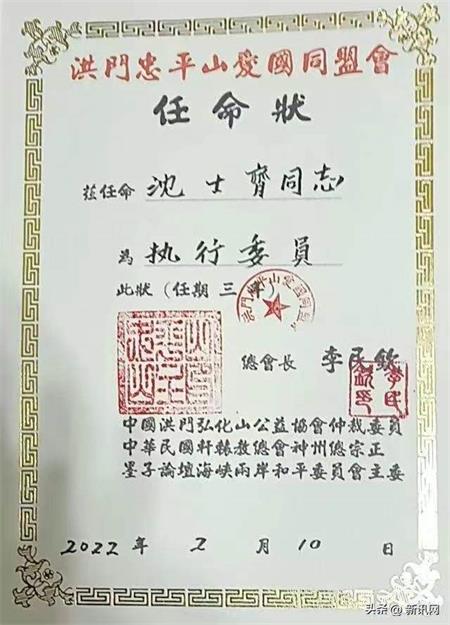 洪門忠平山愛國同盟會
任命狀
茲任命 沈士齊同志
為 执行委員
此狀（任期三年）
總會長 李民欽
中國洪門弘化山公益協會仲裁委員
中華民國軒轅教總會神州總宗正
墨子論壇海峽兩岸和平委員會主委
2022年2月10日
头条@新讯网